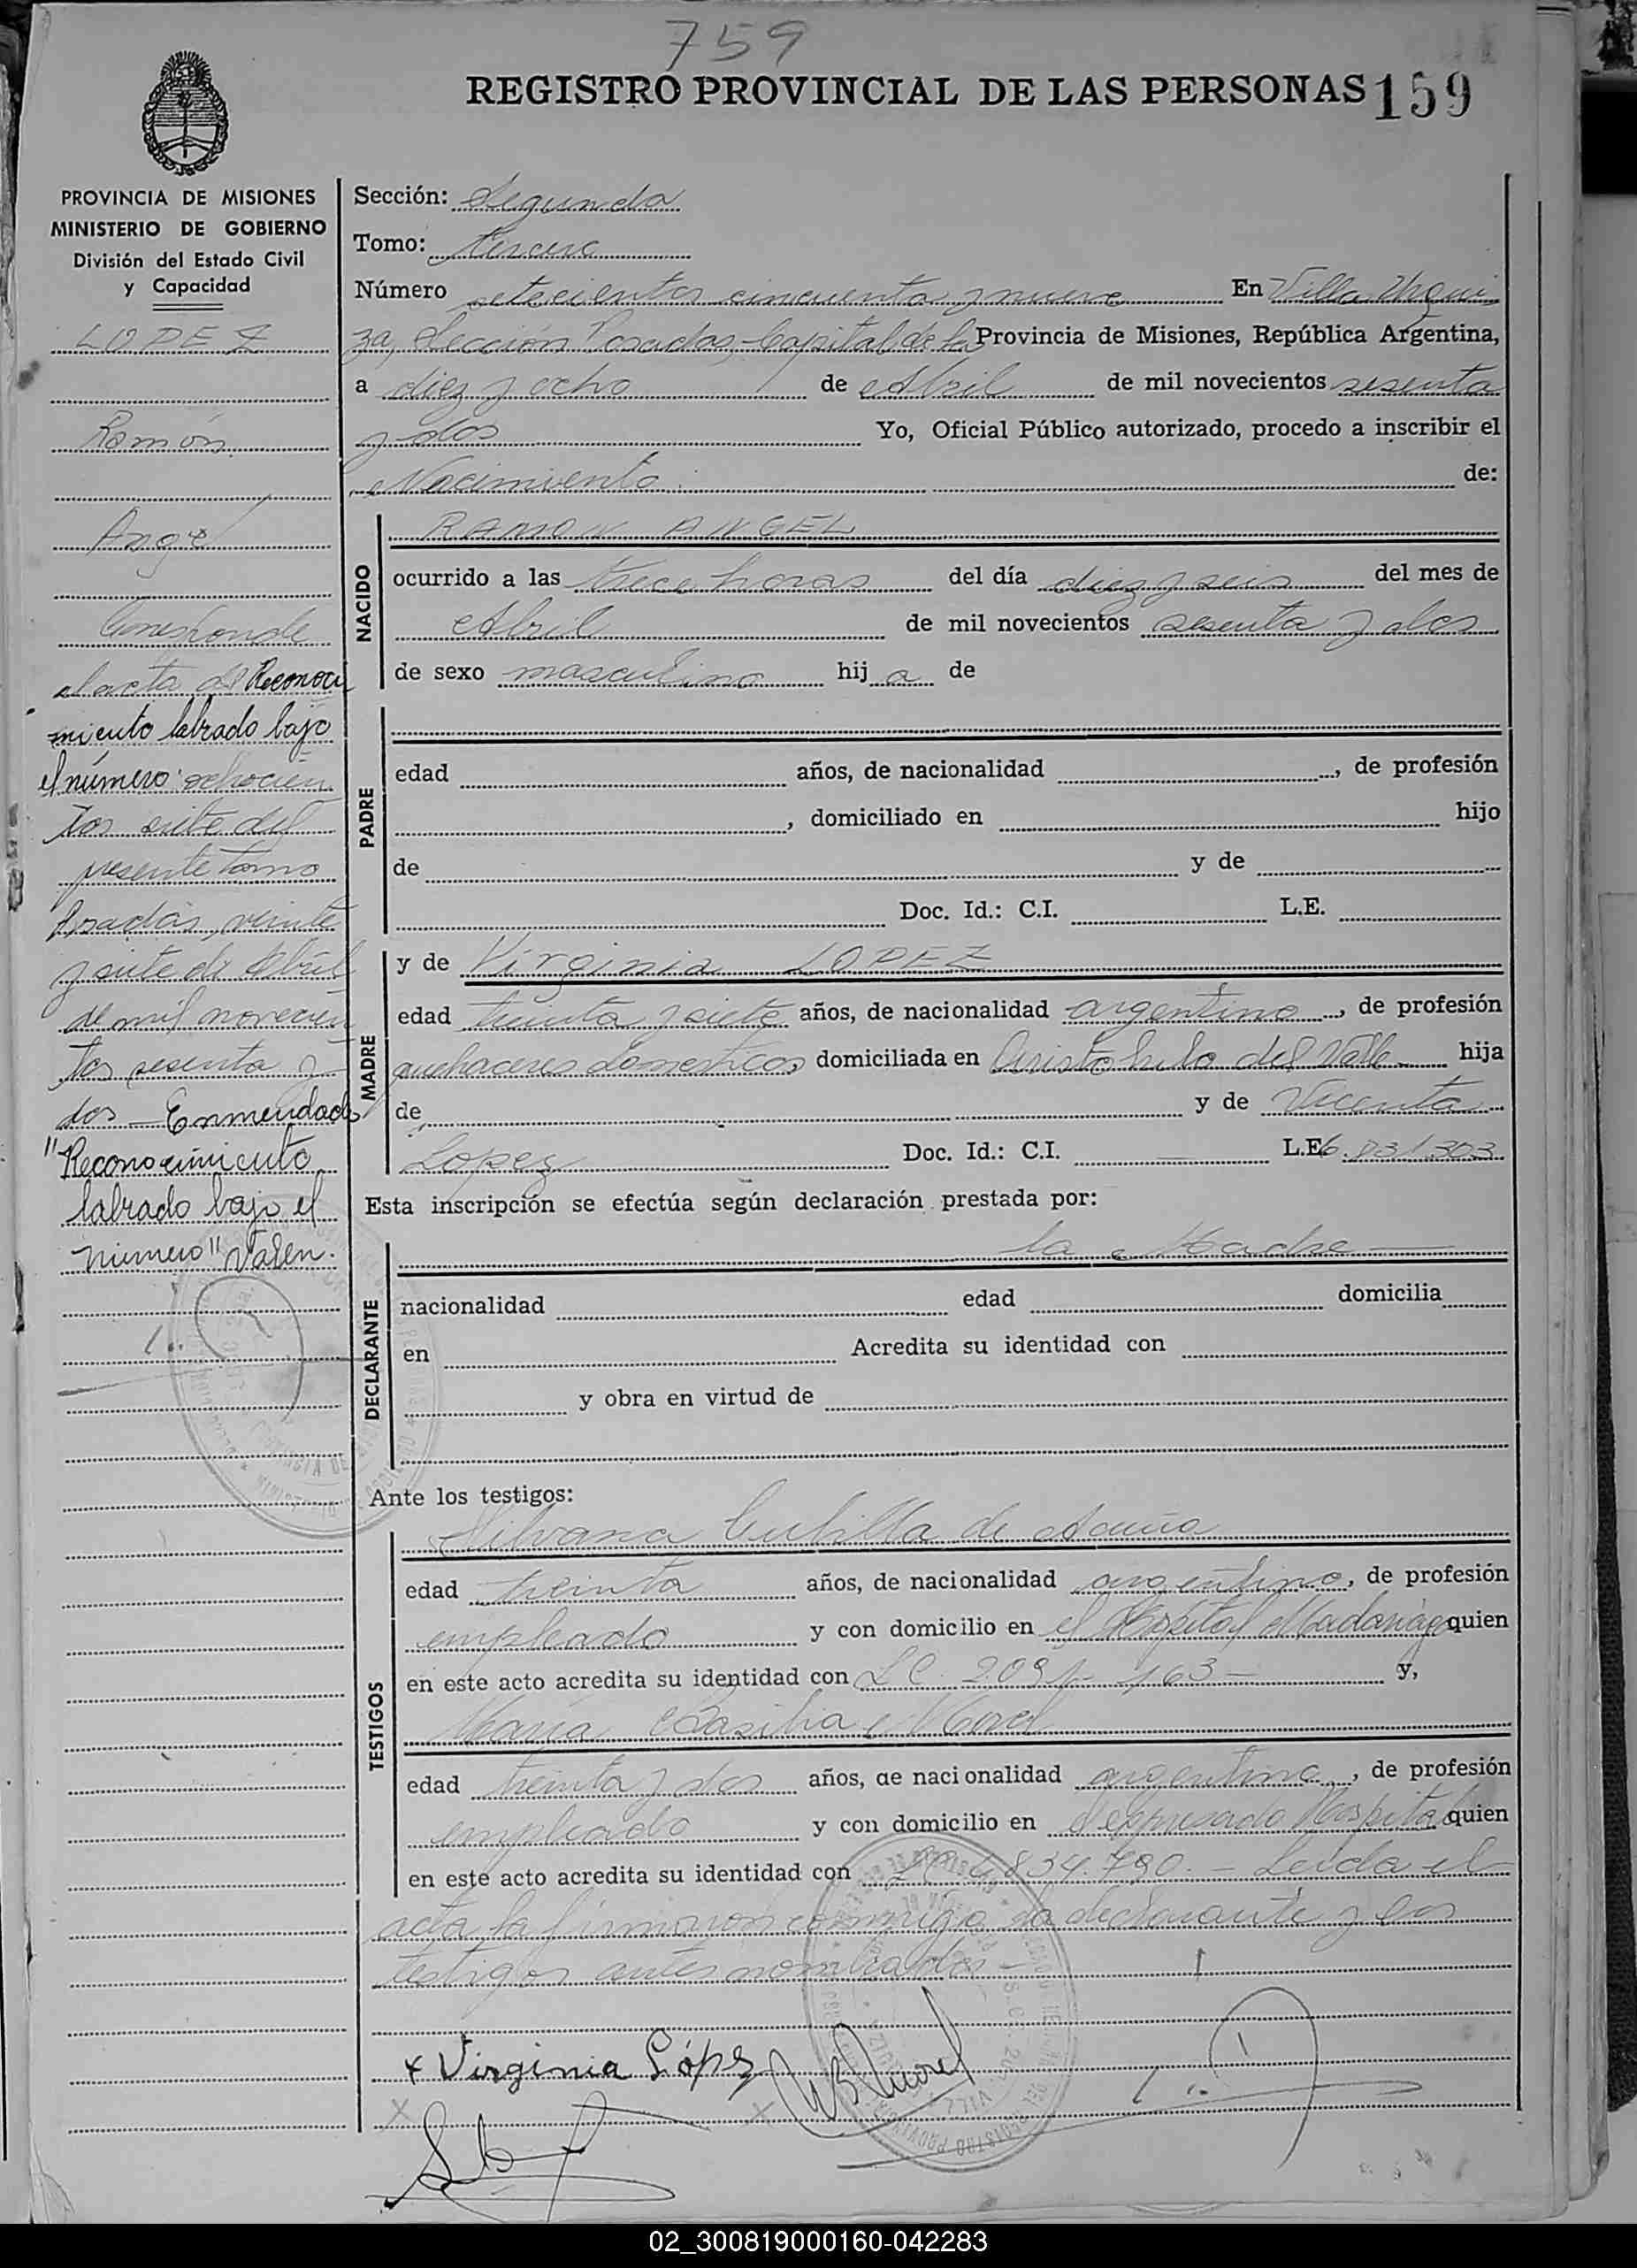 759
REGISTRO PROVINCIAL DE LAS PERSONAS 159
PROVINCIA DE MISIONES
MINISTERIO DE GOBIERNO
División del Estado Civil
y Capacidad
LOPEZ
Ramón
Angel
Corresponde
al acta de Reconoci
miento labrado bajo
el número ochocien
tos siete del
presente tomo
Posadas, veinte
y siete de Abril
de mil novecien
tos sesenta y
dos - Enmendado
"Reconocimiento
labrado bajo el
número" Valen.
Sección: Segunda
Tomo: tercero
Número setecientos cincuenta y nueve En Villa Urqui
za, Sección Posadas, Capital de la Provincia de Misiones, República Argentina,
a diez y ocho de Abril de mil novecientos sesenta
y dos Yo, Oficial Público autorizado, procedo a inscribir el
Nacimiento de:
NACIDO
RAMON ANGEL
ocurrido a las trece horas del día diez y seis del mes de
Abril de mil novecientos sesenta y dos
de sexo masculino hij a de
PADRE
edad años, de nacionalidad , de profesión
, domiciliado en hijo
de y de
Doc. Id.: C.I. L.E.
MADRE
y de Virginia LOPEZ
edad treinta y siete años, de nacionalidad argentina, de profesión
quehaceres domesticos domiciliada en Aristobulo del Valle hija
de y de Vicenta
Lopez Doc. Id.: C.I. — L.E. 6.831.303
Esta inscripción se efectúa según declaración prestada por:
la Madre —
DECLARANTE
nacionalidad edad domicilia
en Acredita su identidad con
y obra en virtud de
Ante los testigos:
TESTIGOS
Silvana Cubilla de Acuña
edad treinta años, de nacionalidad argentina, de profesión
empleada y con domicilio en el Hospital Madariaga quien
en este acto acredita su identidad con LC 163 — y,
María Basilia Morel
edad treinta y dos años, de nacionalidad argentina, de profesión
empleada y con domicilio en el expresado Hospital quien
en este acto acredita su identidad con LC 4.834.790. - Leida el
acta la firmaron conmigo la declarante y los
testigos antes nombrados -
x Virginia López
MBMorel
02_300819000160-042283